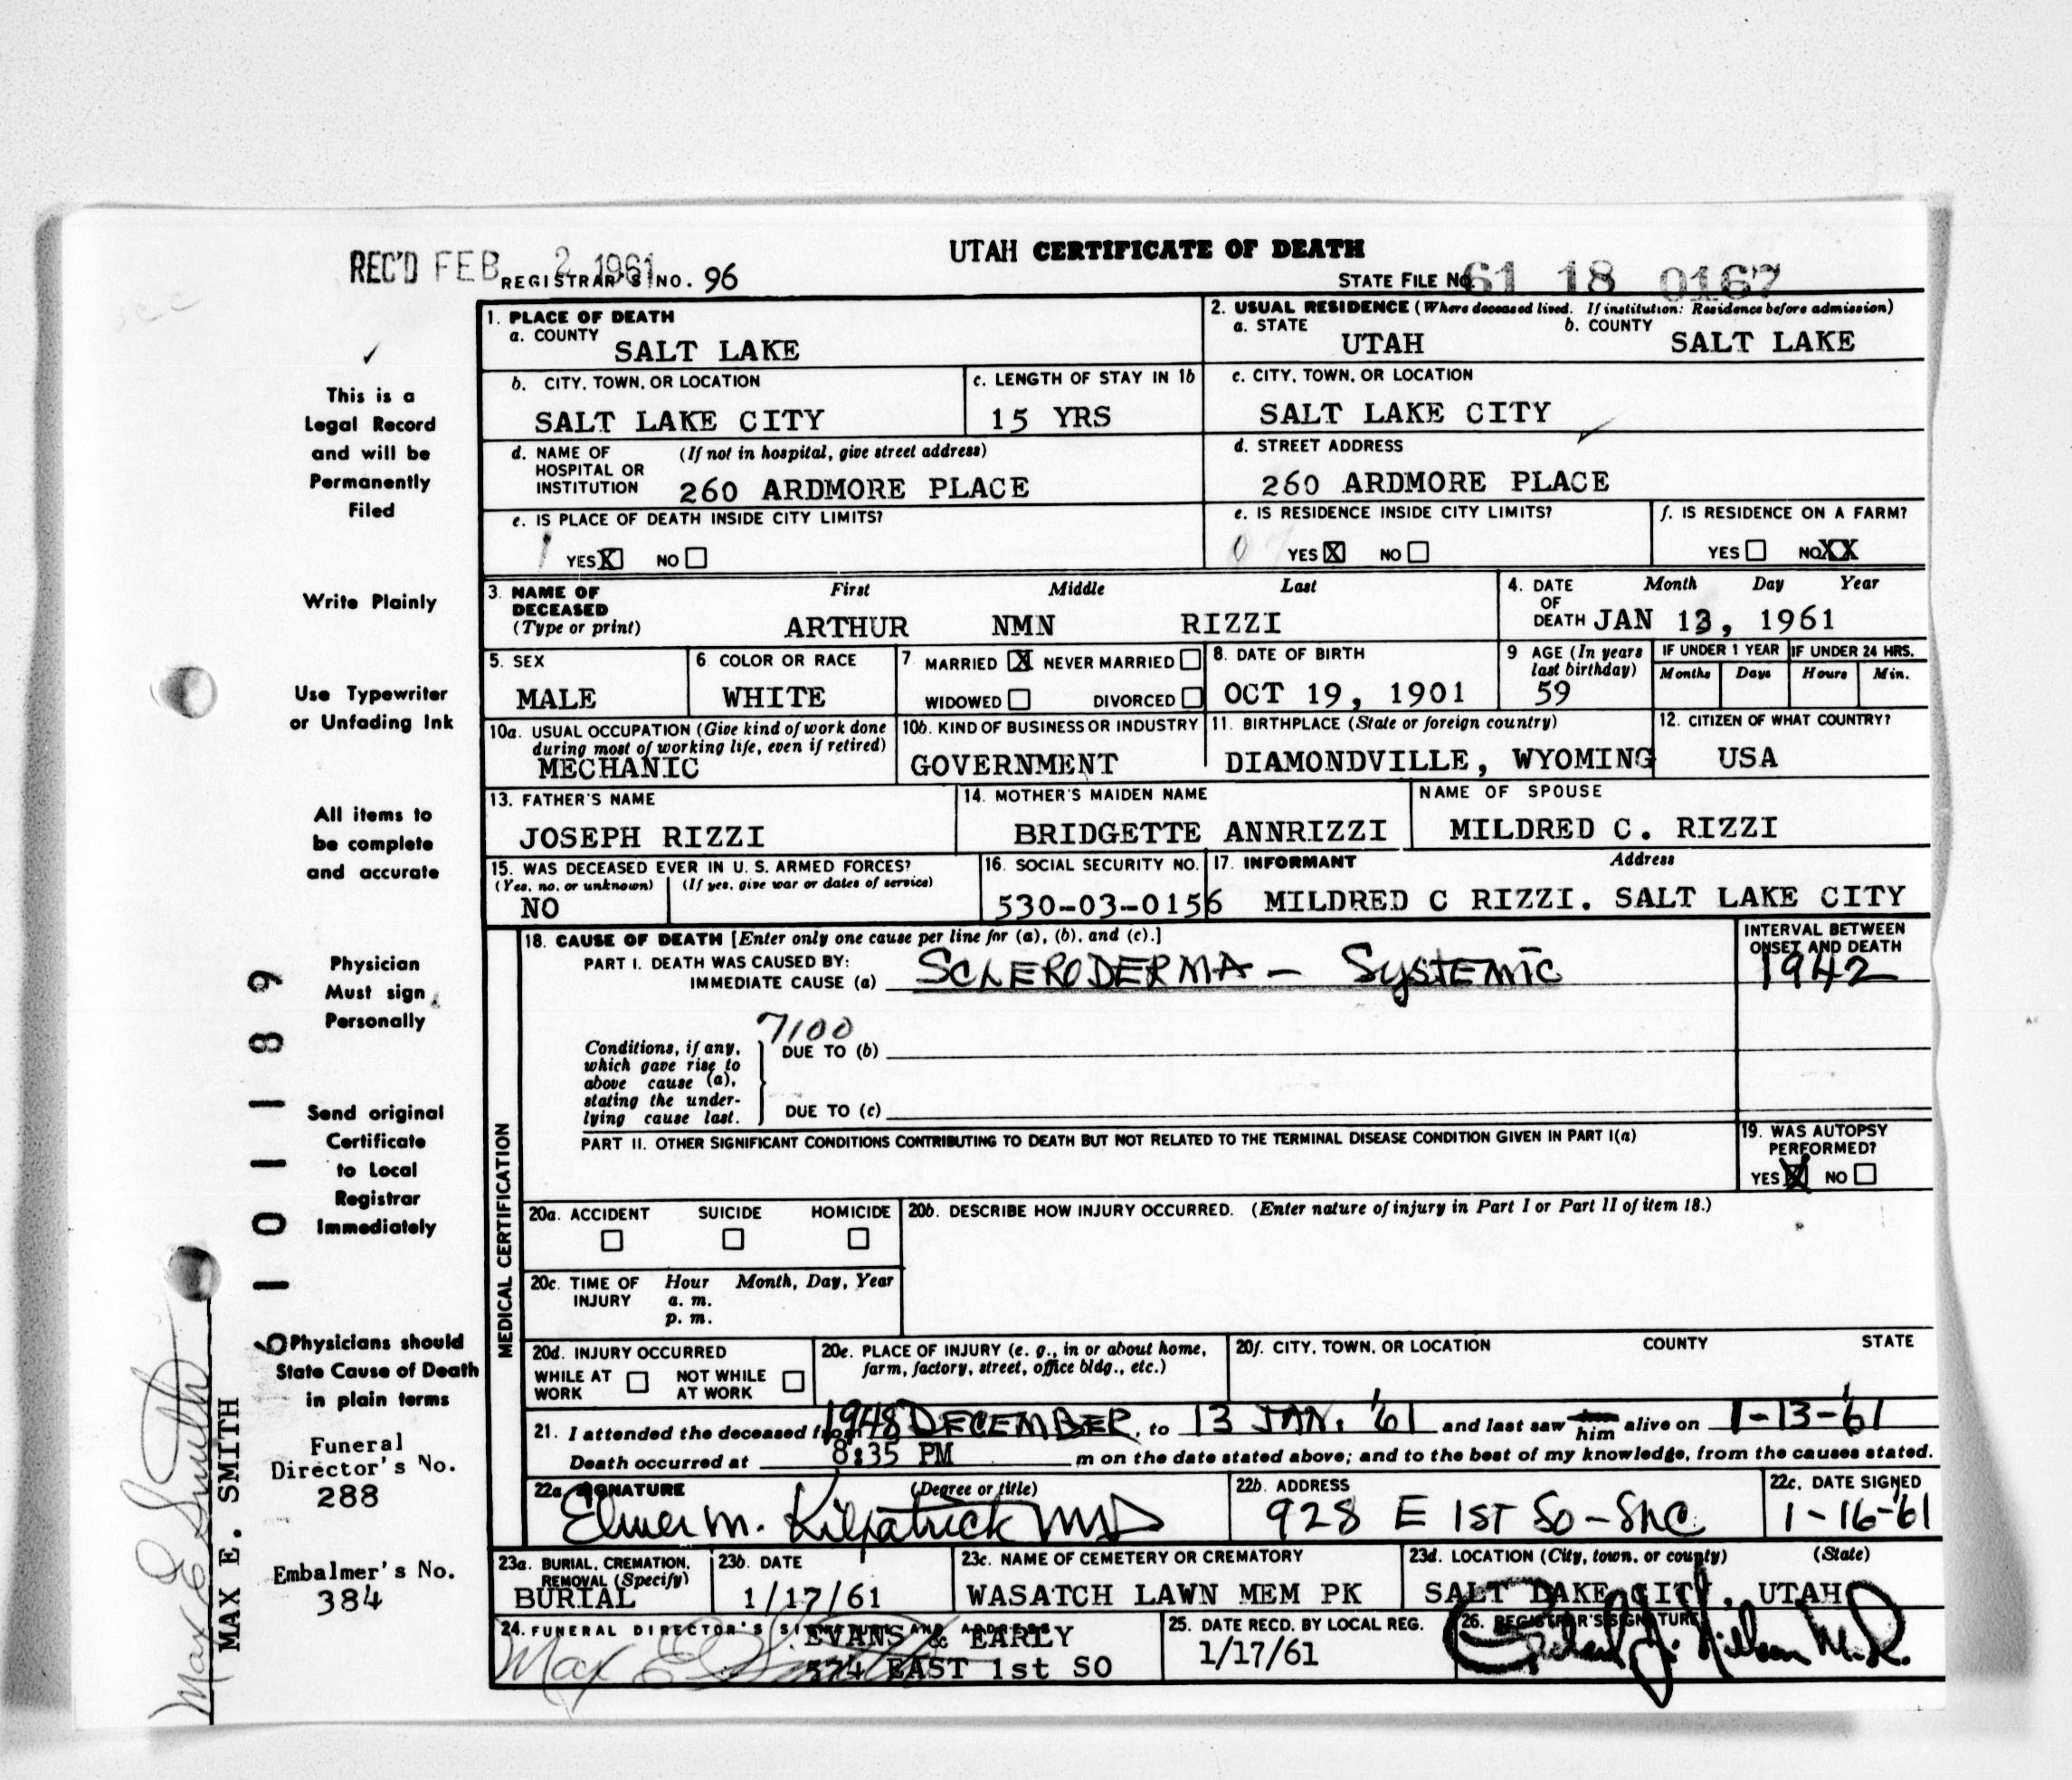 UTAH CERTIFICATE OF DEATH
REC'D FEB 2 1961
REGISTRAR'S NO. 96
STATE FILE NO. 61 18 0167
This is a
Legal Record
and will be
Permanently
Filed
Write Plainly
Use Typewriter
or Unfading Ink
All items to
be complete
and accurate
Physician
Must sign
Personally
Send original
Certificate
to Local
Registrar
Immediately
Physicians should
State Cause of Death
in plain terms
Funeral
Director's No.
288
Embalmer's No.
384
6 1 0 1 1 8 9
Max E Smith
MAX E. SMITH
1. PLACE OF DEATH
a. COUNTY
SALT LAKE
2. USUAL RESIDENCE (Where deceased lived. If institution: Residence before admission)
a. STATE b. COUNTY
UTAH SALT LAKE
b. CITY, TOWN, OR LOCATION
SALT LAKE CITY
c. LENGTH OF STAY IN 1b
15 YRS
c. CITY, TOWN, OR LOCATION
SALT LAKE CITY
d. NAME OF (If not in hospital, give street address)
HOSPITAL OR
INSTITUTION 260 ARDMORE PLACE
d. STREET ADDRESS
260 ARDMORE PLACE
e. IS PLACE OF DEATH INSIDE CITY LIMITS?
YES X NO
e. IS RESIDENCE INSIDE CITY LIMITS?
YES X NO
f. IS RESIDENCE ON A FARM?
YES NO XX
3. NAME OF First Middle Last
DECEASED
(Type or print) ARTHUR NMN RIZZI
4. DATE Month Day Year
OF
DEATH JAN 13, 1961
5. SEX
MALE
6. COLOR OR RACE
WHITE
7. MARRIED X NEVER MARRIED
WIDOWED DIVORCED
8. DATE OF BIRTH
OCT 19, 1901
9 AGE (In years
last birthday)
59
IF UNDER 1 YEAR IF UNDER 24 HRS.
Months Days Hours Min.
10a. USUAL OCCUPATION (Give kind of work done
during most of working life, even if retired)
MECHANIC
10b. KIND OF BUSINESS OR INDUSTRY
GOVERNMENT
11. BIRTHPLACE (State or foreign country)
DIAMONDVILLE, WYOMING
12. CITIZEN OF WHAT COUNTRY?
USA
13. FATHER'S NAME
JOSEPH RIZZI
14. MOTHER'S MAIDEN NAME
BRIDGETTE ANNRIZZI
NAME OF SPOUSE
MILDRED C. RIZZI
15. WAS DECEASED EVER IN U. S. ARMED FORCES?
(Yes, no, or unknown) (If yes, give war or dates of service)
NO
16. SOCIAL SECURITY NO.
530-03-0156
17. INFORMANT Address
MILDRED C RIZZI. SALT LAKE CITY
MEDICAL CERTIFICATION
18. CAUSE OF DEATH [Enter only one cause per line for (a), (b), and (c).]
PART I. DEATH WAS CAUSED BY:
IMMEDIATE CAUSE (a) SCLERODERMA - SYSTEMIC
INTERVAL BETWEEN
ONSET AND DEATH
1942
7100
Conditions, if any,
which gave rise to
above cause (a),
stating the under-
lying cause last.
DUE TO (b)
DUE TO (c)
PART II. OTHER SIGNIFICANT CONDITIONS CONTRIBUTING TO DEATH BUT NOT RELATED TO THE TERMINAL DISEASE CONDITION GIVEN IN PART I(a)
19. WAS AUTOPSY
PERFORMED?
YES X NO
20a. ACCIDENT SUICIDE HOMICIDE
20b. DESCRIBE HOW INJURY OCCURRED. (Enter nature of injury in Part I or Part II of item 18.)
20c. TIME OF Hour Month, Day, Year
INJURY a. m.
p. m.
20d. INJURY OCCURRED
WHILE AT NOT WHILE
WORK AT WORK
20e. PLACE OF INJURY (e. g., in or about home,
farm, factory, street, office bldg., etc.)
20f. CITY, TOWN, OR LOCATION COUNTY STATE
21. I attended the deceased from 1948 DECEMBER, to 13 JAN. '61 and last saw him alive on 1-13-'61
Death occurred at 8:35 PM m on the date stated above; and to the best of my knowledge, from the causes stated.
22a. SIGNATURE (Degree or title)
Elmer M. Kilpatrick MD
22b. ADDRESS
928 E 1ST SO - SLC
22c. DATE SIGNED
1-16-'61
23a. BURIAL, CREMATION,
REMOVAL (Specify)
BURIAL
23b. DATE
1/17/61
23c. NAME OF CEMETERY OR CREMATORY
WASATCH LAWN MEM PK
23d. LOCATION (City, town, or county) (State)
SALT LAKE CITY, UTAH
24. FUNERAL DIRECTOR'S SIGNATURE AND ADDRESS
EVANS & EARLY
Max E Smith 574 EAST 1st SO
25. DATE RECD. BY LOCAL REG.
1/17/61
26. REGISTRAR'S SIGNATURE